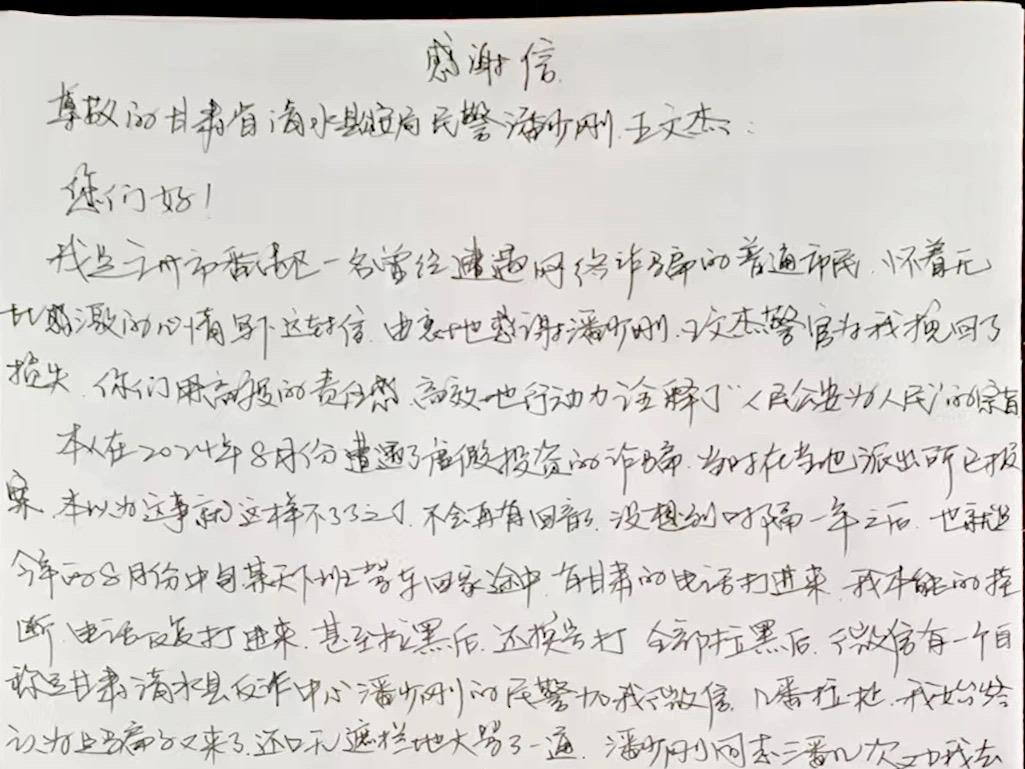 感谢信
尊敬的甘肃省清水县公安局民警潘少刚、王文杰:
您们好!
我是广州市番禺区一名曾经遭遇网络诈骗的普通市民,怀着无
比感激的心情写下这封信,由衷地感谢潘少刚、王文杰警官为我挽回了
损失,你们用高度的责任感、高效地行动力诠释了"人民公安为人民"的宗旨
本人在2024年8月份遭遇了虚假投资的诈骗,当时在当地派出所已报
案,本以为这事就这样不了了之了,不会再有回音,没想到时隔一年之后,也就是
今年的8月份中旬某天下班驾车回家途中,有甘肃的电话打进来,我本能的挂
断,电话反复打进来,甚至拉黑后,还换号打,全部拉黑后,微信有一个自
称是甘肃清水县反诈中心潘少刚的民警加我微信,几番拉扯,我始终
认为是骗子又来了,还口无遮拦地大骂了一通,潘少刚同志三番几次加我去